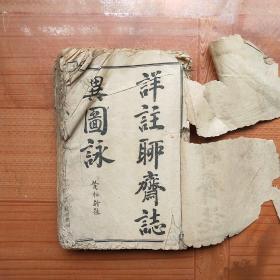 詳註聊齋誌
異圖詠